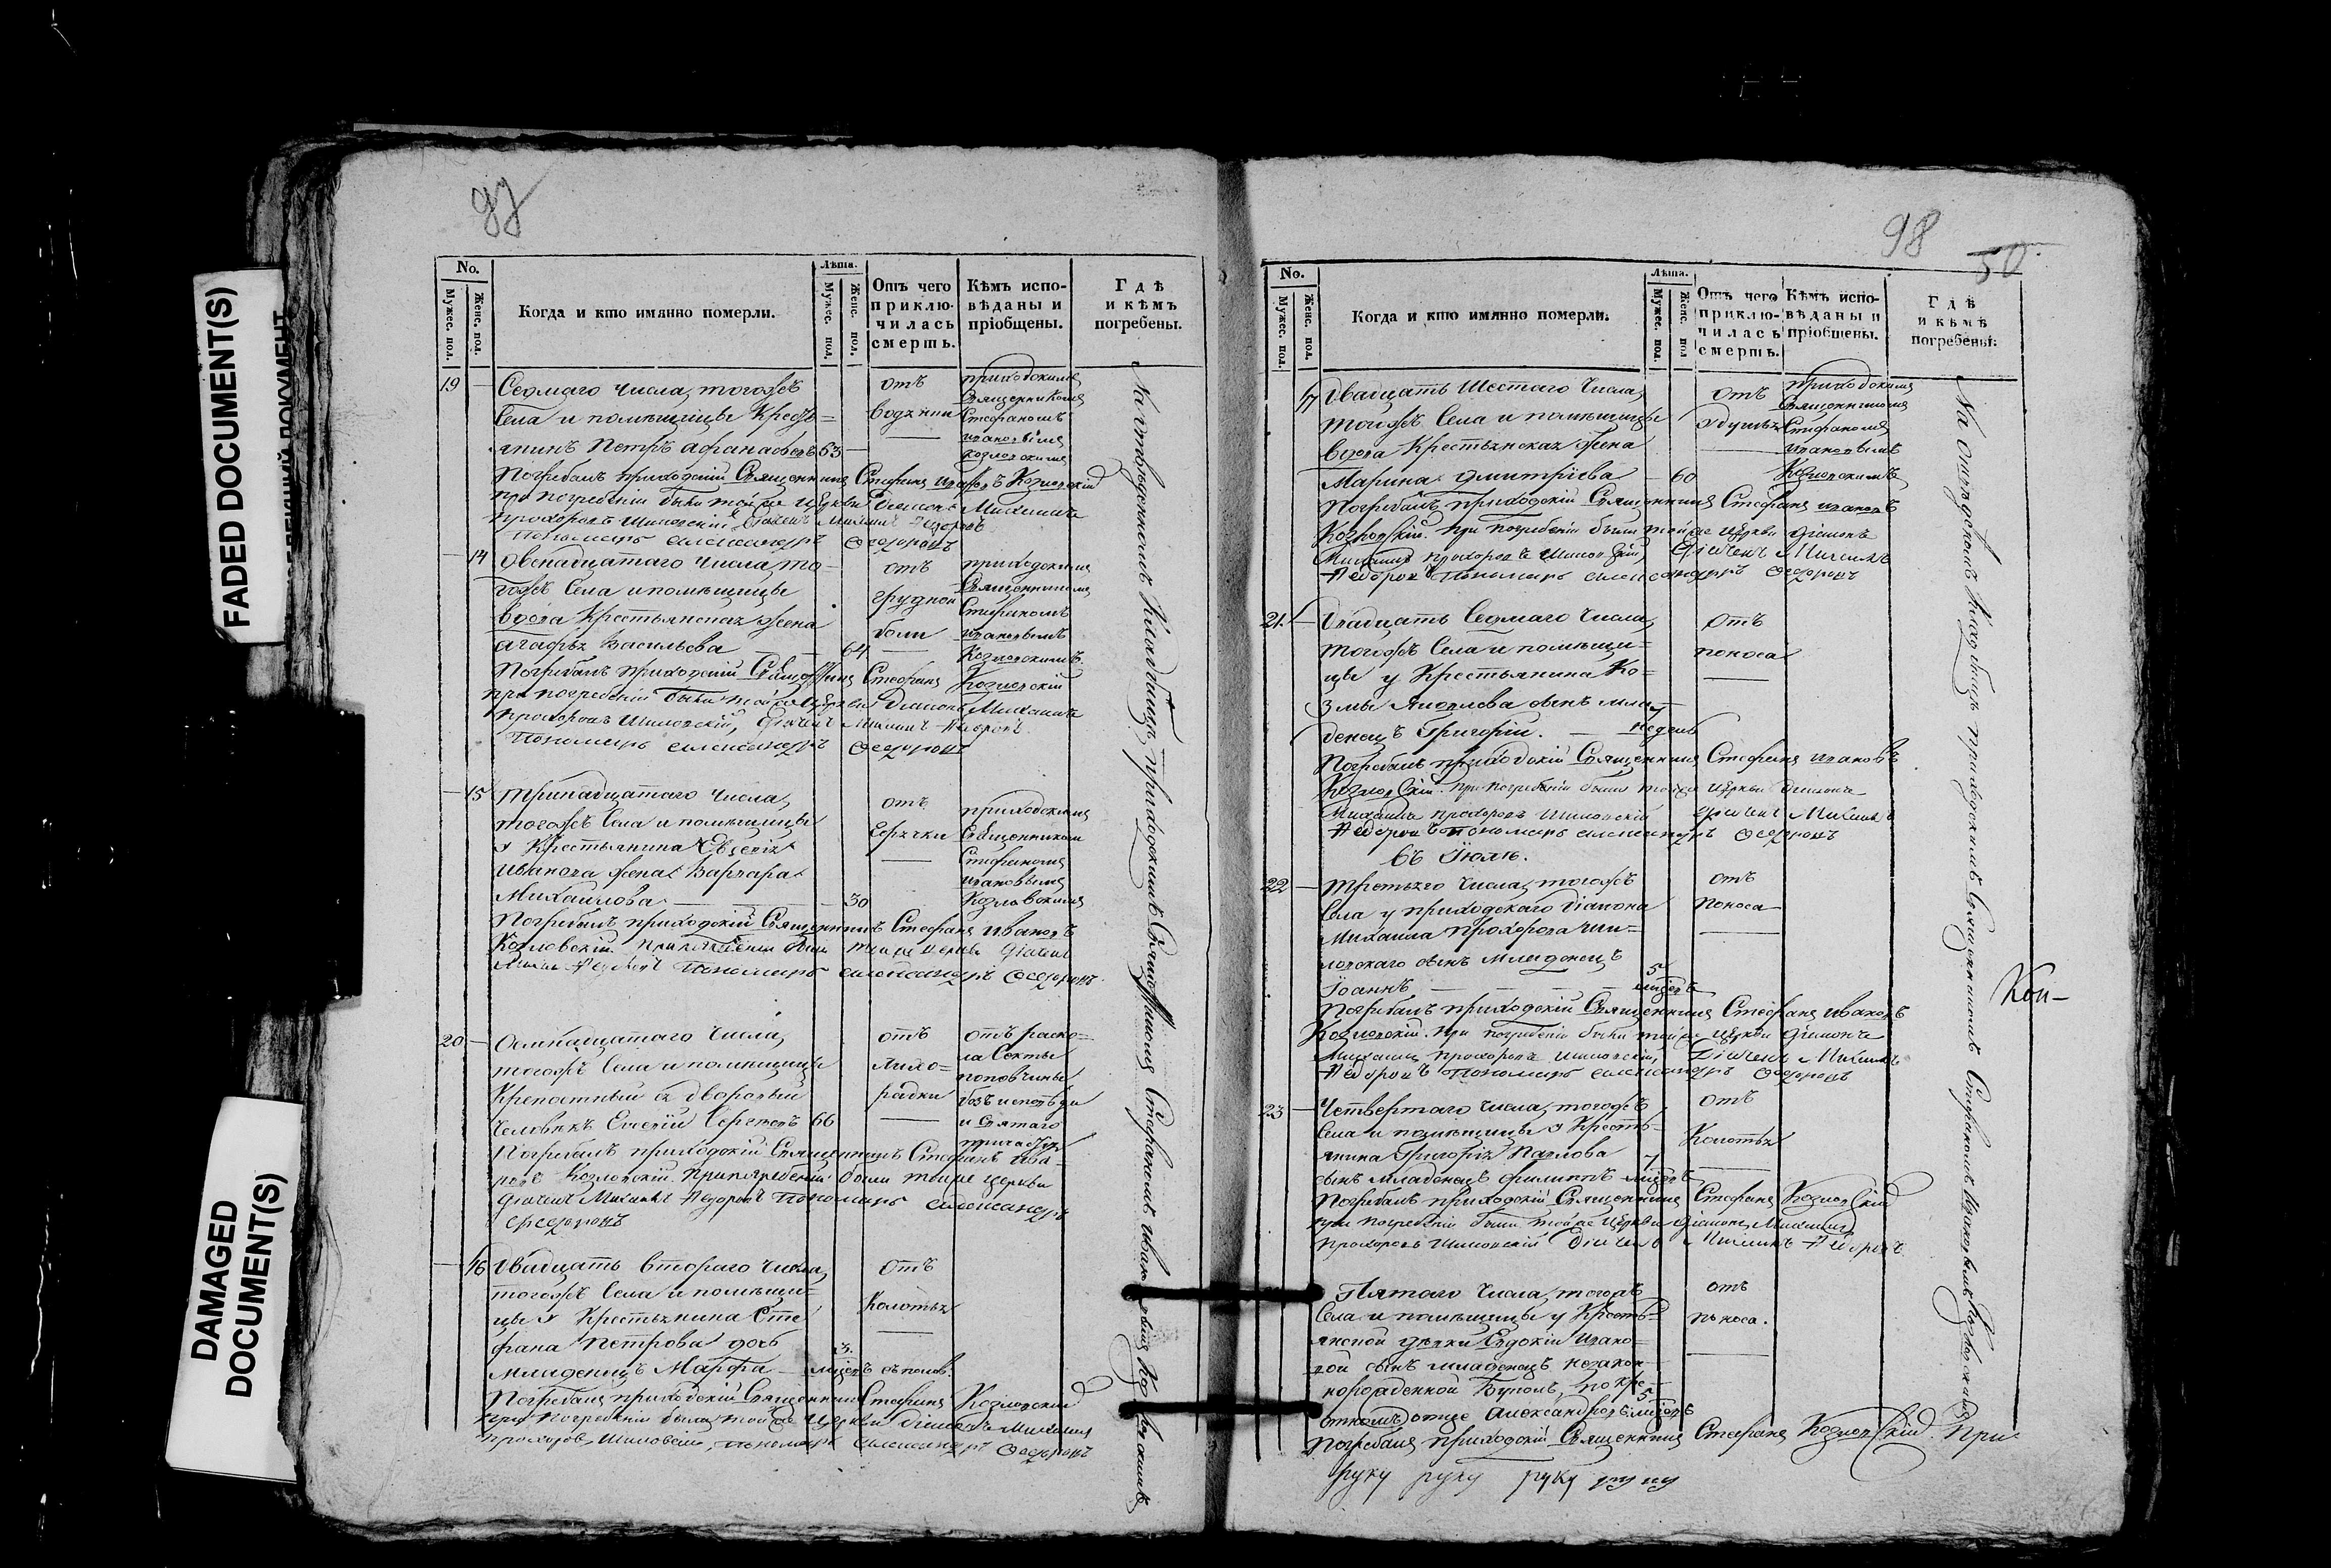 FADED DOCUMENT(S)
DAMAGED
DOCUMENT(S)
97
No.
Мужес. пол.
Женс. пол.
Когда и кто имянно померли.
Лѣта.
Мужес. пол.
Женс. пол.
Отъ чего
приклю-
чилась
смерть.
Кѣмъ испо-
вѣданы и
пріобщены.
Гдѣ
и кѣмъ
погребены.
19 — Седмаго числа, тогожъ
села и помѣщицы кресть=
янинъ Петръ Афанасьевъ 63 —
отъ
водяни
приходскимъ
Священникомъ
Стефаномъ
Ивановымъ
Козловскимъ
Погребалъ приходскій Священникъ Стефанъ Ивановъ Козловскій
при погребеніи были тойже церкви Діаконъ Михаилъ
Прохоровъ Шиловскій Дьячекъ Михаилъ Федоровъ
Пономарь Александръ Ѳедоровъ
— 14 Двенадцатаго числа, то=
гожъ села и помѣщицы
вдова крестьянская жена
Агафья Васильева — — 64
отъ
грудной
боли
приходскимъ
Священникомъ
Стефаномъ
Ивановымъ
Козловскимъ.
Погребалъ приходскій Священникъ Стефанъ Козловскій
при погребеніи были тойже церкви Діаконъ Михаилъ
Прохоровъ Шиловскій, Дьячекъ Михаилъ Федоровъ
Пономарь Александръ Ѳедоровъ
— 15 Тринадцатаго числа,
тогожъ села и помѣщицы
у крестьянина Евсевія
Иванова жена Варвара
Михайлова — — 30
отъ
горячки
приходскимъ
Священникомъ
Стефаномъ
Ивановымъ
Козловскимъ
Погребалъ приходскій Священникъ Стефанъ Ивановъ
Козловскій. При погребеніи были тойже церкви Дьячекъ
Михаилъ Федоровъ Пономарь Александръ Ѳедоровъ.
20 — Осмнадцатаго числа,
тогожъ села и помѣщицы
крепостный дворовый
человѣкъ Евсевій Сергеевъ 66
отъ
лихо=
радки
отъ раско=
ла секты
поповчины
безъ исповѣди
и Святаго
причастія
Погребалъ приходскій Священникъ Стефанъ Ива=
новъ Козловскій при погребеніи были тойже церкви
Дьячекъ Михаилъ Федоровъ Пономарь Александръ
Ѳедоровъ
— 16 Двадцать втораго числа,
тогожъ села и помѣщи=
цы у крестьянина Сте
фана Петрова дочь
младенецъ Марфа — 3. мѣсяцовъ съ полов.
отъ
колотья
Погребалъ приходскій Священникъ Стефанъ Козловскій
при погребеніи были тойже церкви Діаконъ Михаилъ
Прохоровъ Шиловскій, пономарь Александръ Ѳедоровъ
На отведенномъ кладбищѣ приходскимъ Священникомъ Стефаномъ Ивановымъ Козловскимъ
98
50
No.
Мужес. пол.
Женс. пол.
Когда и кто имянно померли.
Лѣта.
Мужес. пол.
Женс. пол
Отъ чего
приклю-
чилась
смерть.
Кѣмъ испо-
вѣданы и
пріобщены.
Гдѣ
и кѣмъ
погребены.
17 Двадцать шестаго числа,
тойжъ села и помѣщицы
вдова крестьянская жена
Марина Дмитріева — 60
отъ
удушья
приходскимъ
Священникомъ
Стефаномъ
Ивановымъ
Козловскимъ
Погребалъ приходскій Священникъ Стефанъ Ивановъ
Козловскій. При погребеніи были тойже церкви Діаконъ
Михаилъ Прохоровъ Шиловскій, Дьячекъ Михаилъ
Федоровъ Пономарь Александръ Ѳедоровъ
21. — Двадцать седмаго числа,
тогожъ села и помѣщи=
цы у крестьянина Ко=
змы Яковлева сынъ мла
денецъ Григорій. — 7 недель
отъ
поноса
Погребалъ приходскій Священникъ Стефанъ Ивановъ
Козловскій. При погребеніи были тойже церкви Діаконъ
Михаилъ Прохоровъ Шиловскій Дьячекъ Михаилъ
Федоровъ Пономарь Александръ Ѳедоровъ
Въ Іюлѣ.
22 — Третьяго числа, тогожъ
села у приходскаго діакона
Михаила Прохорова Ши=
ловскаго сынъ младенецъ
Іоаннъ — — — 5 мѣсяцовъ
отъ
поноса
Погребалъ приходскій Священникъ Стефанъ Ивановъ
Козловскій. При погребеніи были тойже церкви Діаконъ
Михаилъ Прохоровъ Шиловскій, Дьячекъ Михаилъ
Федоровъ Пономарь Александръ Ѳедоровъ
23 — Четвертаго числа, тогожъ
села и помѣщицы у кресть=
янина Григорія Павлова
сынъ младенецъ Филиппъ 7 мѣсяцовъ
отъ
колотья
Погребалъ приходскій Священникъ Стефанъ Козловскій
при погребеніи были тойже церкви Діаконъ Михаилъ
Прохоровъ Шиловскій Дьячекъ Михаилъ Федоровъ.
Пятаго числа, тогожъ
села и помѣщицы у кресть=
янской девки Евдокіи Ивано=
вой сынъ младенецъ незакон
норожденной по кре=
стномъ отце Александровъ 5 мѣсяцовъ
отъ
поноса.
Погребалъ приходскій Священникъ Стефанъ Козловскій. При
руку руку руку руку
На отведенномъ кладбищѣ приходскимъ Священникомъ Стефаномъ Ивановымъ Козловскимъ
Кон-